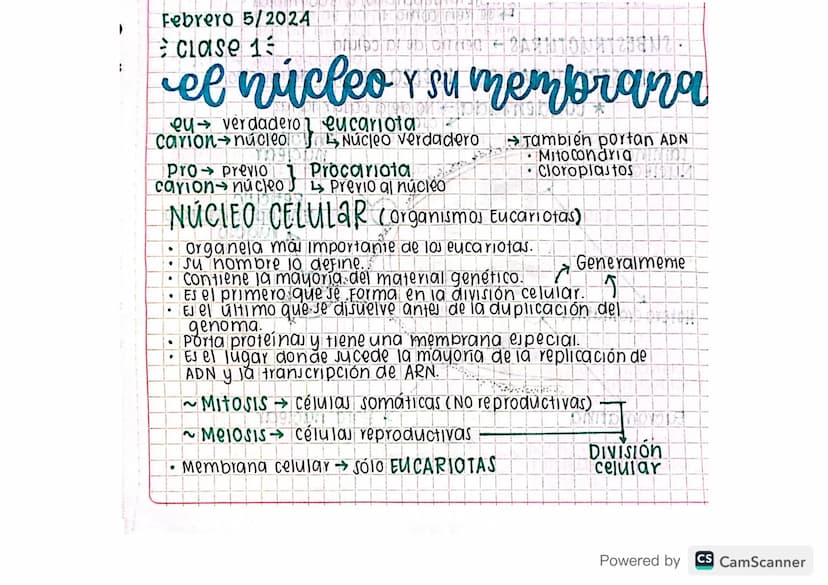 Febrero 5/2024
Clase 1
el núcleo y su membrana
eu → verdadero } eucariota
carion → núcleo ↳ Núcleo verdadero → También portan ADN
• Mitocondria
Pro → previo } Procariota • Cloroplastos
carion → núcleo ↳ Previo al núcleo
NÚCLEO CELULAR (Organismos Eucariotas)
• Organela más importante de los eucariotas.
• Su nombre lo define. Generalmente
• Contiene la mayoría del material genético.
• Es el primero que se forma en la división celular.
• Es el último que se disuelve antes de la duplicación del
genoma.
• Porta proteínas y tiene una membrana especial.
• Es el lugar donde sucede la mayoría de la replicación de
ADN y la transcripción de ARN.
~ Mitosis → células somáticas (No reproductivas)
~ Meiosis → células reproductivas
División
celular
• Membrana celular → sólo EUCARIOTAS
Powered by CS CamScanner